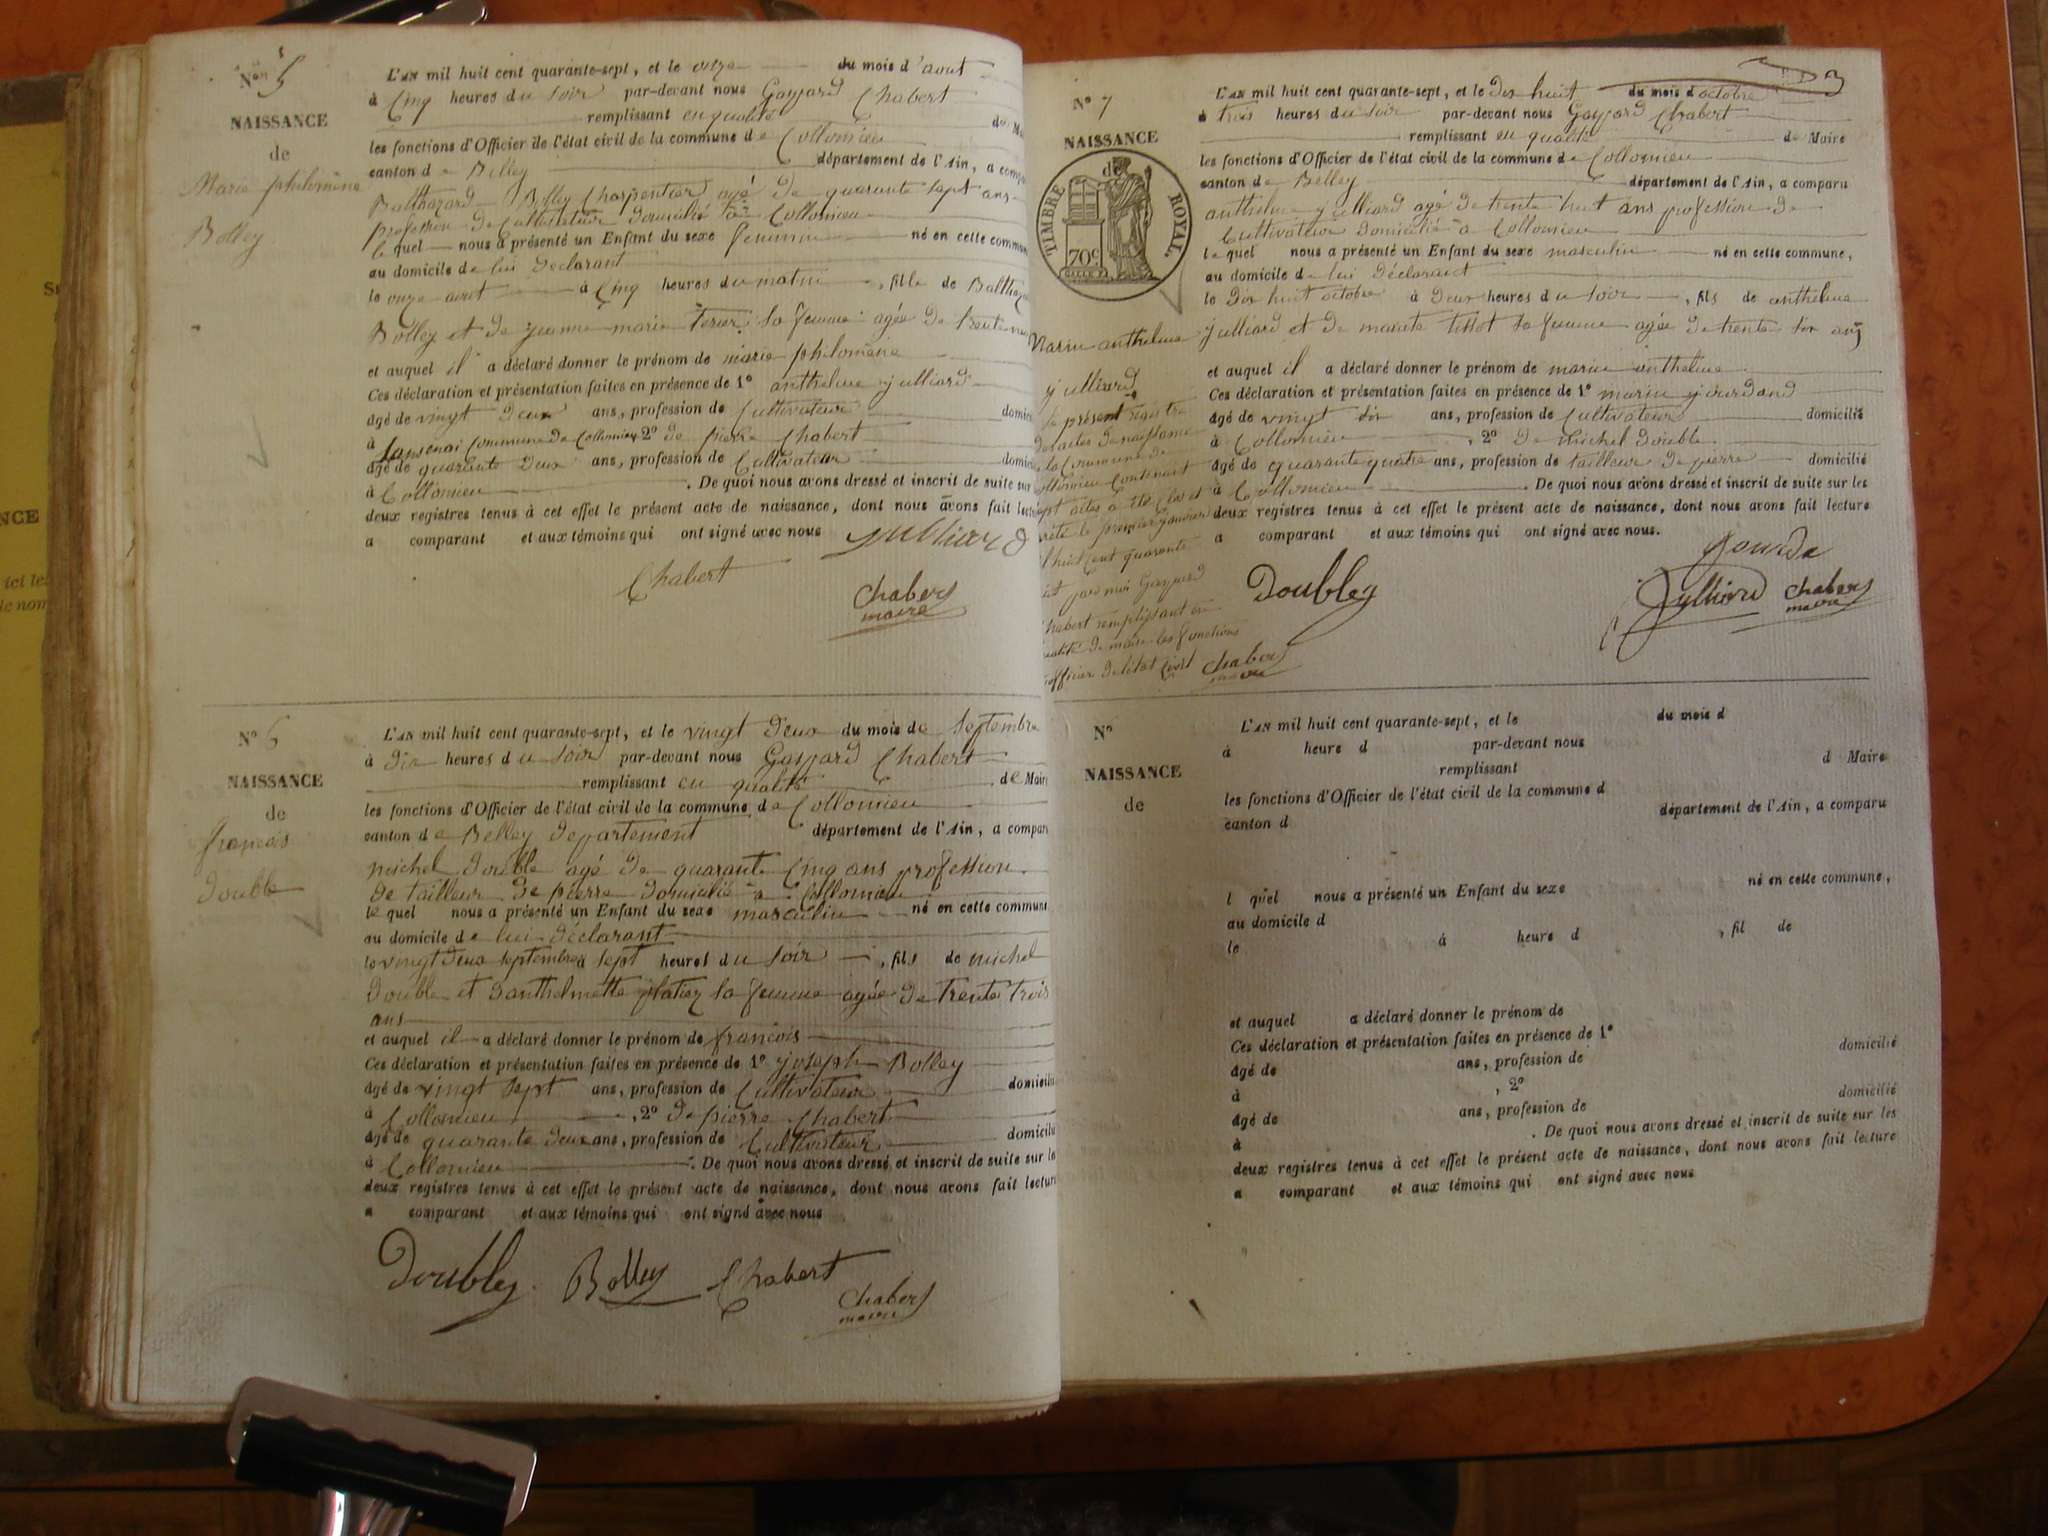 Nº 5
NAISSANCE
de
Marie philomène
Bolley
L'AN mil huit cent quarante-sept, et le onze du mois d'aout
à Cinq heures du soir par-devant nous Gaspard Chabert
remplissant en qualité de Mai
les fonctions d'Officier de l'état civil de la commune de Collomieu
canton de Belley département de l'Ain, a compa
Balthazard Bolley Charpentier agé de quarante sept ans
profession de Cultivateur domicilié à Collomieu
lequel nous a présenté un Enfant du sexe feminin né en cette commun
au domicile de lui déclarant
le onze aout à Cinq heures du matin, fille de Balthaza
Bolley et de jeanne marie sa femme agée de trente
et auquel il a déclaré donner le prénom de marie philomène
Ces déclaration et présentation faites en présence de 1º anthelme julliard
âgé de vingt deux ans, profession de Cultivateur domici
à Commune de Collomieu 2º de pierre Chabert
âgé de quarante deux ans, profession de Cultivateur domici
à Collomieu. De quoi nous avons dressé et inscrit de suite sur
deux registres tenus à cet effet le présent acte de naissance, dont nous avons fait lectu
a comparant et aux témoins qui ont signé avec nous
Julliard
Chabert
Chabert
maire
Nº 6
NAISSANCE
de
françois
double
L'AN mil huit cent quarante-sept, et le vingt deux du mois de septembre
à dix heures du soir par-devant nous Gaspard Chabert
remplissant en qualité de Maire
les fonctions d'Officier de l'état civil de la commune de Collomieu
canton de Belley departement département de l'Ain, a compar
michel double agé de quarante cinq ans profession
de tailleur de pierre domicilié a Collomieu
lequel nous a présenté un Enfant du sexe masculin né en cette commune
au domicile de lui déclarant
le vingt deux septembre à sept heures du soir, fils de michel
double et d'anthelmette platiez sa femme agée de trente trois
ans
et auquel il a déclaré donner le prénom de françois
Ces déclaration et présentation faites en présence de 1º joseph Bolley
âgé de vingt sept ans, profession de Cultivateur domicilié
à Collomieu, 2º de pierre Chabert
âgé de quarante deux ans, profession de Cultivateur domicilié
à Collomieu. De quoi nous avons dressé et inscrit de suite sur le
deux registres tenus à cet effet le présent acte de naissance, dont nous avons fait lecture
a comparant et aux témoins qui ont signé avec nous
Doubley Bolley Chabert
Chabert
maire
3
Nº 7
NAISSANCE
de
TIMBRE ROYAL
70c
Marin anthelme
julliard
L'AN mil huit cent quarante-sept, et le dix huit du mois d octobre
à trois heures du soir par-devant nous Gaspard Chabert
remplissant en qualité de Maire
les fonctions d'Officier de l'état civil de la commune de Collomieu
canton de Belley département de l'Ain, a comparu
anthelme julliard agé de trente huit ans profession de
Cultivateur domicilié à Collomieu
lequel nous a présenté un Enfant du sexe masculin né en cette commune,
au domicile de lui déclarant
le dix huit octobre à deux heures du soir, fils de anthelme
julliard et de tissot sa femme agée de trente six ans
et auquel il a déclaré donner le prénom de marin anthelme
Ces déclaration et présentation faites en présence de 1º marin jourdand
âgé de vingt six ans, profession de Cultivateur domicilié
à Collomieu, 2º de michel double
âgé de quarante quatre ans, profession de tailleur de pierre domicilié
à Collomieu. De quoi nous avons dressé et inscrit de suite sur les
deux registres tenus à cet effet le présent acte de naissance, dont nous avons fait lecture
a comparant et aux témoins qui ont signé avec nous.
le présent registre
des actes de naissance
de la Commune de
Collomieu Contenant
sept actes a été clos et
arrêté le premier janvier
huit cent quarante
huit par moi Gaspard
Chabert remplissant en
qualité de maire les fonctions
d'officier de l'état civil Chabert
maire
Doubley
Julliard Chabert
maire
Nº
NAISSANCE
de
L'AN mil huit cent quarante-sept, et le du mois d
à heure d par-devant nous
remplissant d Maire
les fonctions d'Officier de l'état civil de la commune d
canton d département de l'Ain, a comparu
l quel nous a présenté un Enfant du sexe né en cette commune,
au domicile d
le à heure d, fil de
et auquel a déclaré donner le prénom de
Ces déclaration et présentation faites en présence de 1º
âgé de ans, profession de domicilié
à, 2º
âgé de ans, profession de domicilié
à. De quoi nous avons dressé et inscrit de suite sur les
deux registres tenus à cet effet le présent acte de naissance, dont nous avons fait lecture
a comparant et aux témoins qui ont signé avec nous